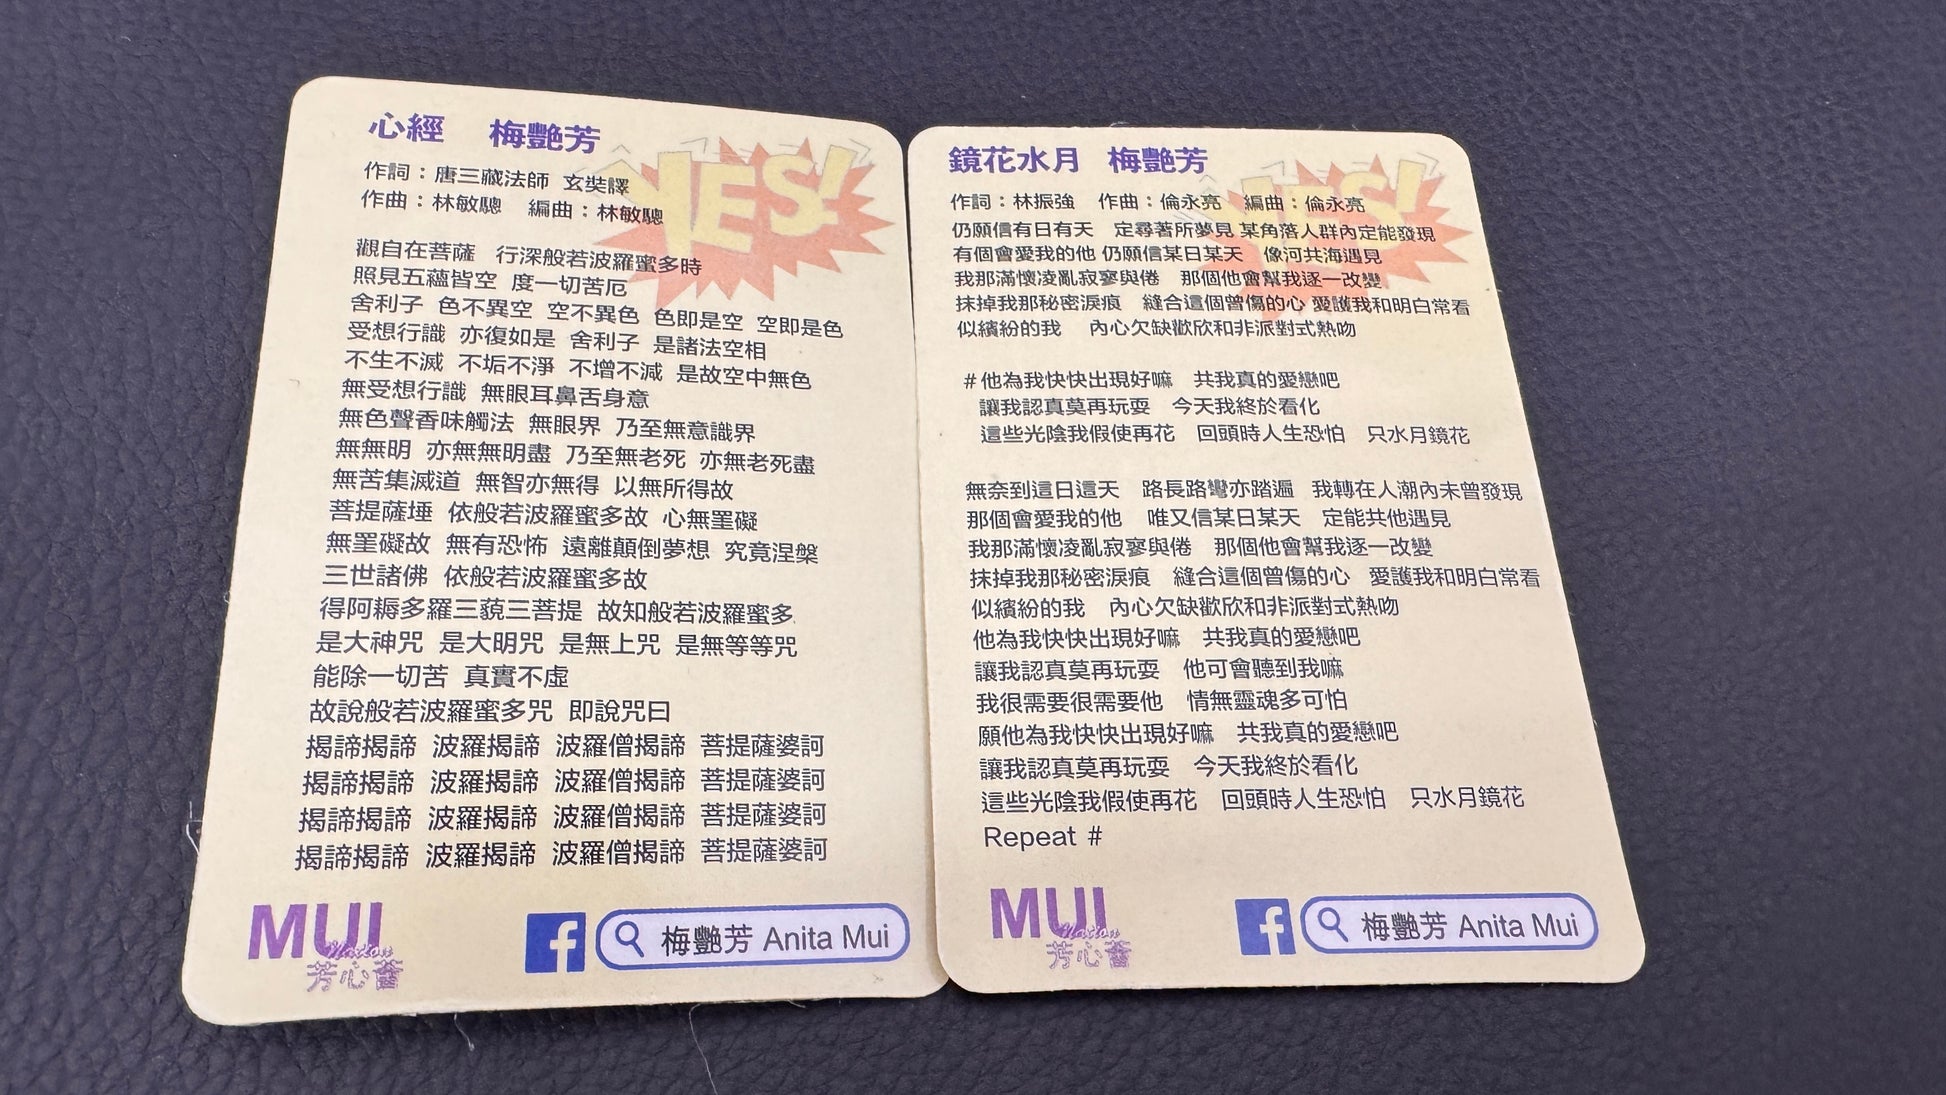 心經 梅艷芳
作詞：唐三藏法師 玄奘譯
作曲：林敏驄 編曲：林敏驄
觀自在菩薩 行深般若波羅蜜多時
照見五蘊皆空 度一切苦厄
舍利子 色不異空 空不異色 色即是空 空即是色
受想行識 亦復如是 舍利子 是諸法空相
不生不滅 不垢不淨 不增不減 是故空中無色
無受想行識 無眼耳鼻舌身意
無色聲香味觸法 無眼界 乃至無意識界
無無明 亦無無明盡 乃至無老死 亦無老死盡
無苦集滅道 無智亦無得 以無所得故
菩提薩埵 依般若波羅蜜多故 心無罣礙
無罣礙故 無有恐怖 遠離顛倒夢想 究竟涅槃
三世諸佛 依般若波羅蜜多故
得阿耨多羅三藐三菩提 故知般若波羅蜜多
是大神咒 是大明咒 是無上咒 是無等等咒
能除一切苦 真實不虛
故說般若波羅蜜多咒 即說咒曰
揭諦揭諦 波羅揭諦 波羅僧揭諦 菩提薩婆訶
揭諦揭諦 波羅揭諦 波羅僧揭諦 菩提薩婆訶
揭諦揭諦 波羅揭諦 波羅僧揭諦 菩提薩婆訶
揭諦揭諦 波羅揭諦 波羅僧揭諦 菩提薩婆訶
YES!
MUI
Nation
芳心薈
f
梅艷芳 Anita Mui
鏡花水月 梅艷芳
作詞：林振強 作曲：倫永亮 編曲：倫永亮
仍願信有日有天 定尋著所夢見 某角落人群內定能發現
有個會愛我的他 仍願信某日某天 像河共海遇見
我那滿懷凌亂寂寥與倦 那個他會幫我逐一改變
抹掉我那秘密淚痕 縫合這個曾傷的心 愛護我和明白常看
似繽紛的我 內心欠缺歡欣和非派對式熱吻
# 他為我快快出現好嘛 共我真的愛戀吧
讓我認真莫再玩耍 今天我終於看化
這些光陰我假使再花 回頭時人生恐怕 只水月鏡花
無奈到這日這天 路長路彎亦踏遍 我轉在人潮內未曾發現
那個會愛我的他 唯又信某日某天 定能共他遇見
我那滿懷凌亂寂寥與倦 那個他會幫我逐一改變
抹掉我那秘密淚痕 縫合這個曾傷的心 愛護我和明白常看
似繽紛的我 內心欠缺歡欣和非派對式熱吻
他為我快快出現好嘛 共我真的愛戀吧
讓我認真莫再玩耍 他可會聽到我嘛
我很需要很需要他 情無靈魂多可怕
願他為我快快出現好嘛 共我真的愛戀吧
讓我認真莫再玩耍 今天我終於看化
這些光陰我假使再花 回頭時人生恐怕 只水月鏡花
Repeat #
YES!
MUI
Nation
芳心薈
f
梅艷芳 Anita Mui